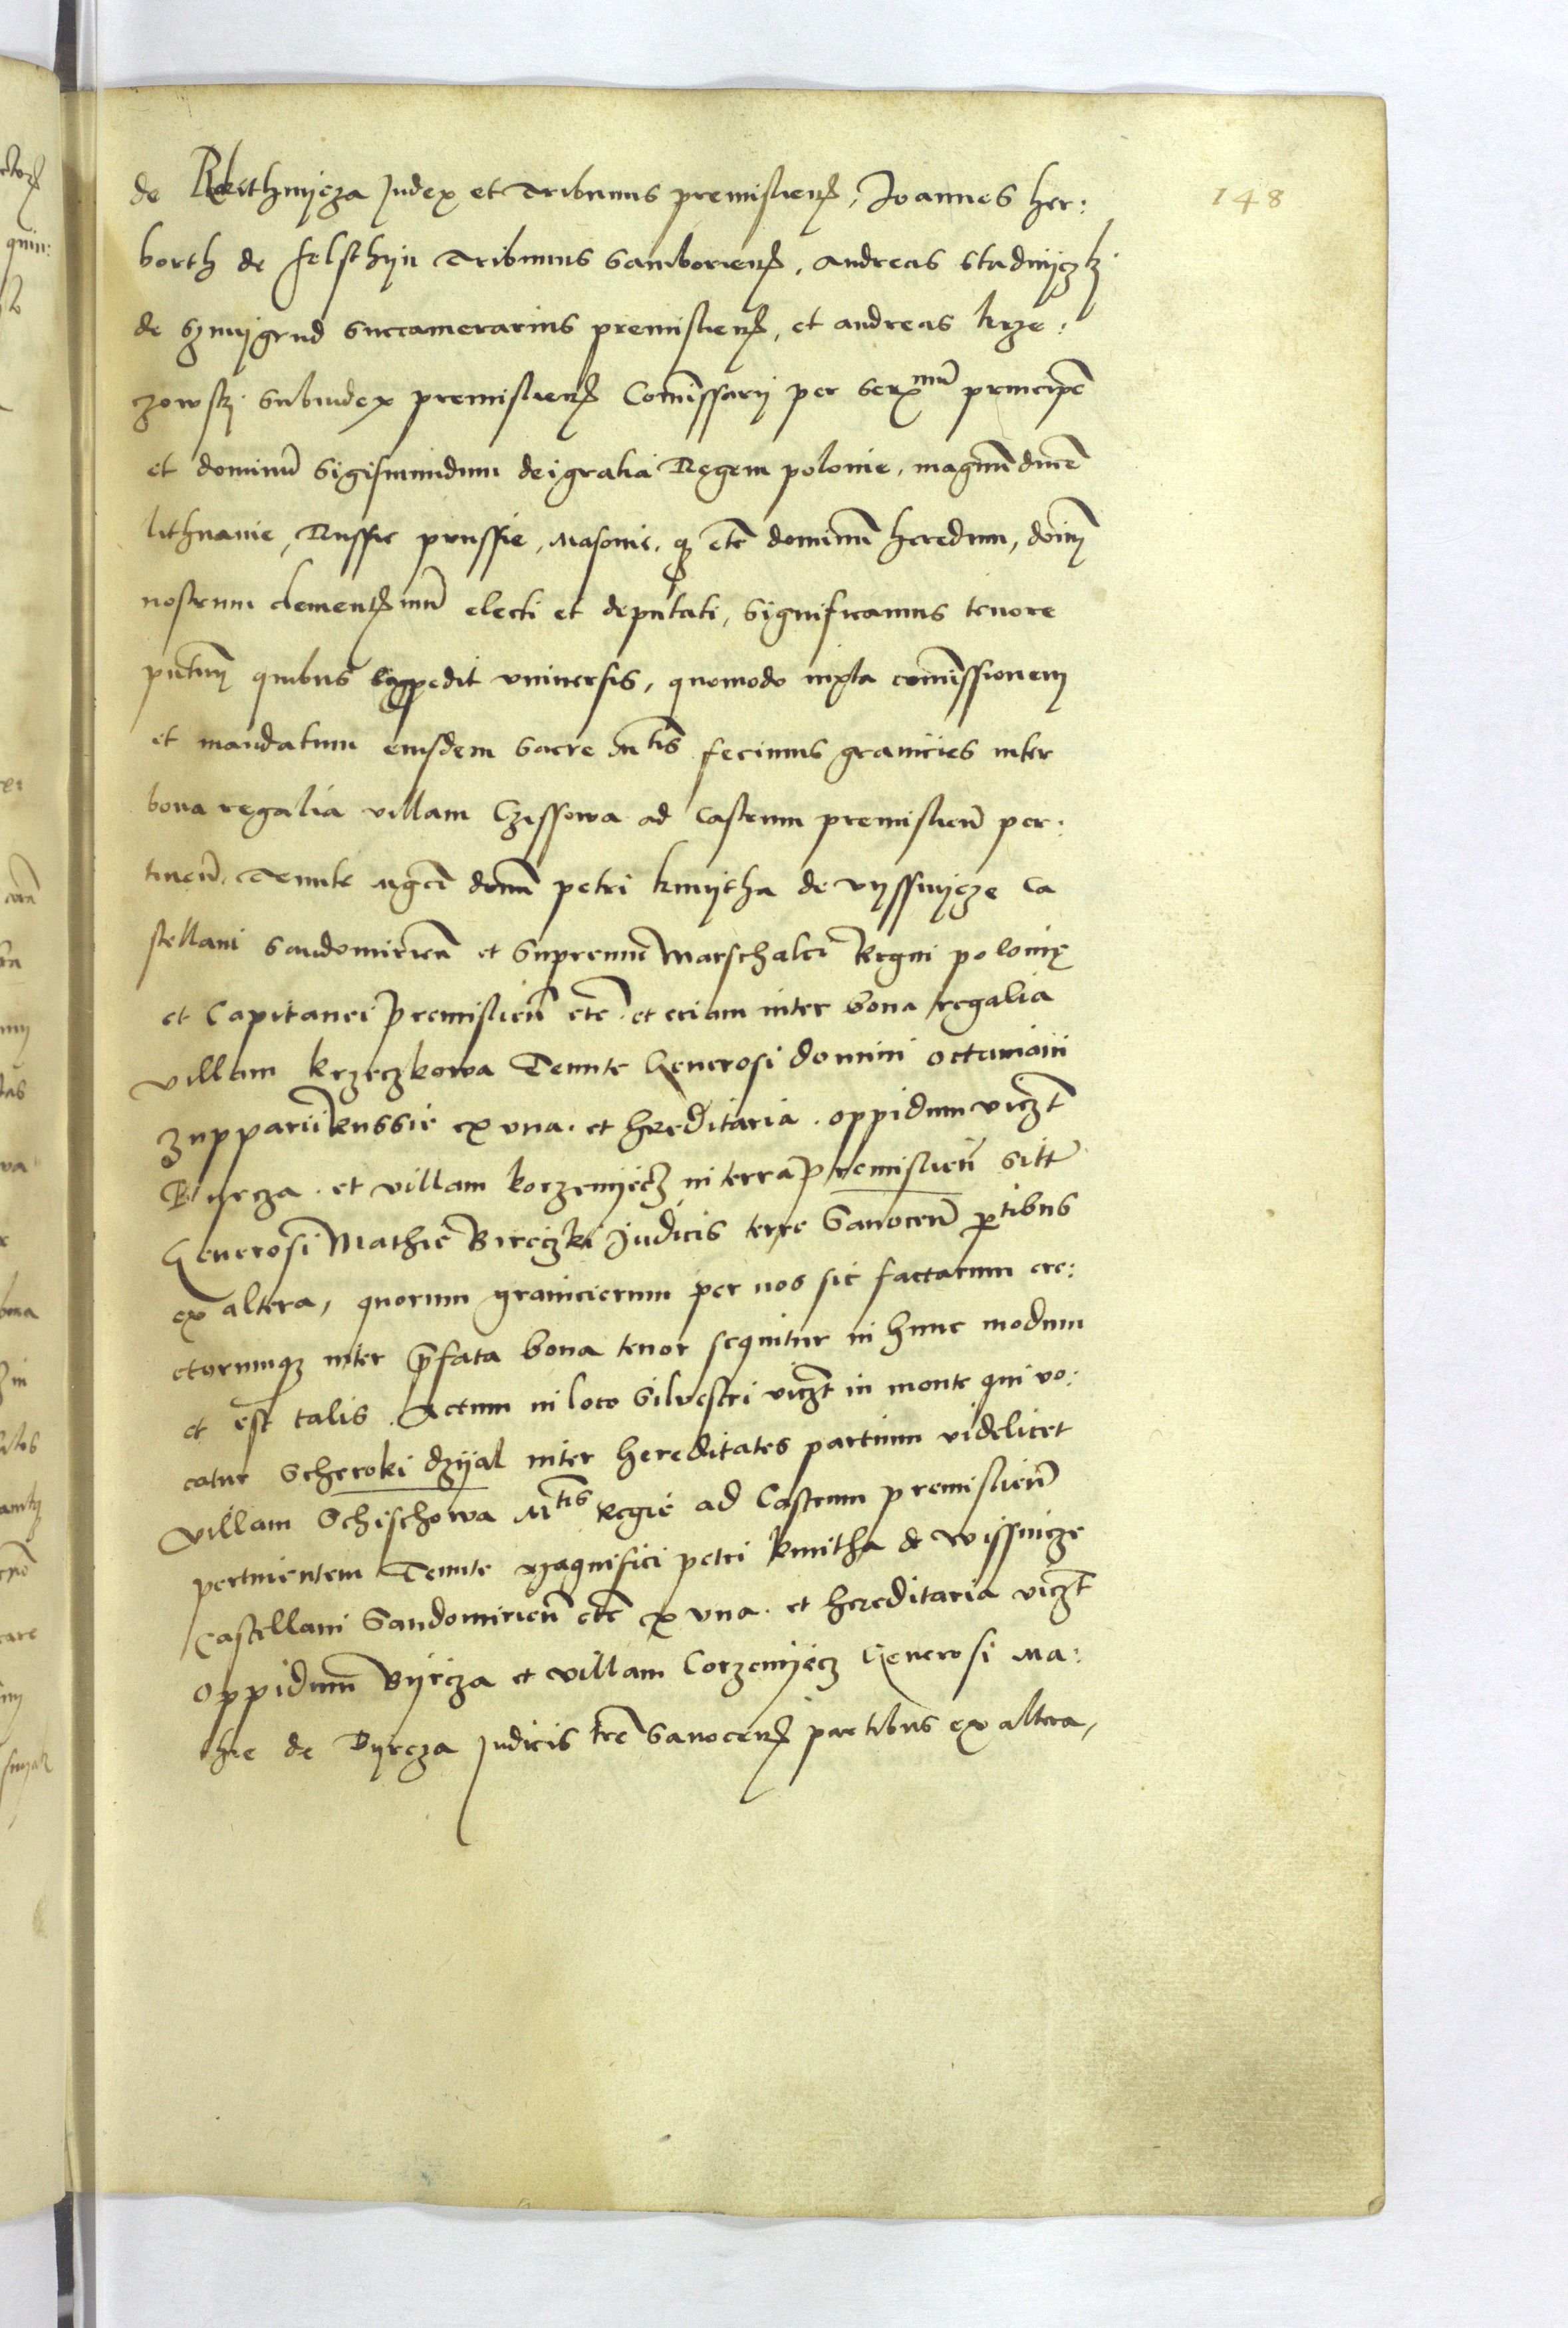 148
de Rokithnycza Judex et Tribunus premislien̄, Joannes her:
borth de felsthyn Tribunus Samborien̄, Andreas Stadnyczkj
de Szmygrud Succamerarius premislien̄, et andreas krze:
czowskj Subiudex premislien̄ Com̄issarij per Serᵐū principē
et dominū Sigismundum dei gratia Regem polonie, magnū ducē
lithuanie, Russie prussie, Masouie, qʒ etc̄ dominū heredum, dom̄
nostrum clementᵐū electi et deputati, Significamus tenore
pn̄tium quibus expedit vniuersis, quomodo iuxta com̄issionem
et mandatum eiusdem Sacre Mᵗⁱˢ fecimus granicies inter
bona regalia villam Czissowa ad Castrum premislien̄ per:
tinen̄, Tenute Mgc̄i domī petri kmytha de vyssnycze Ca
stellani Sandomirien̄ et Supremi Marschalci Regni polonię
et Capitanei premislien̄ etc̄. et eciam inter bona regalia
villam krzeczkowa Tenute Generosi domini octauiani
Zupparii Russie ex vna. et hereditaria. oppidum vicz̄t
Byrcza. et villam korzenyecz in terra premislien̄ Sitt̄
Generosi Mathie Bireczki Judicis terre Sanocen̄ pᵗⁱᵇᵘˢ
ex altera, quorum granicierum per nos sic factarum ere:
ctorumqʒ inter p̄fata bona tenor sequitur in hunc modum
et est talis. Actum in loco Siluestri vicz̄t in monte qui vo:
catur Scheroki dzyal inter hereditates partium videlicet
villam Schischowa Mᵗⁱˢ Regie ad Castrum premislien̄
pertinentem Tenute Magnifici petri kmitha de wissnicze
Castellani Sandomirien̄ etc̄ ex vna. et hereditaria vicz̄t
oppidum Byrcza et villam Corzenyecz Generosi Ma:
thie de Byrcza Judicis tr̄e Sanocen̄ partibus ex altera,